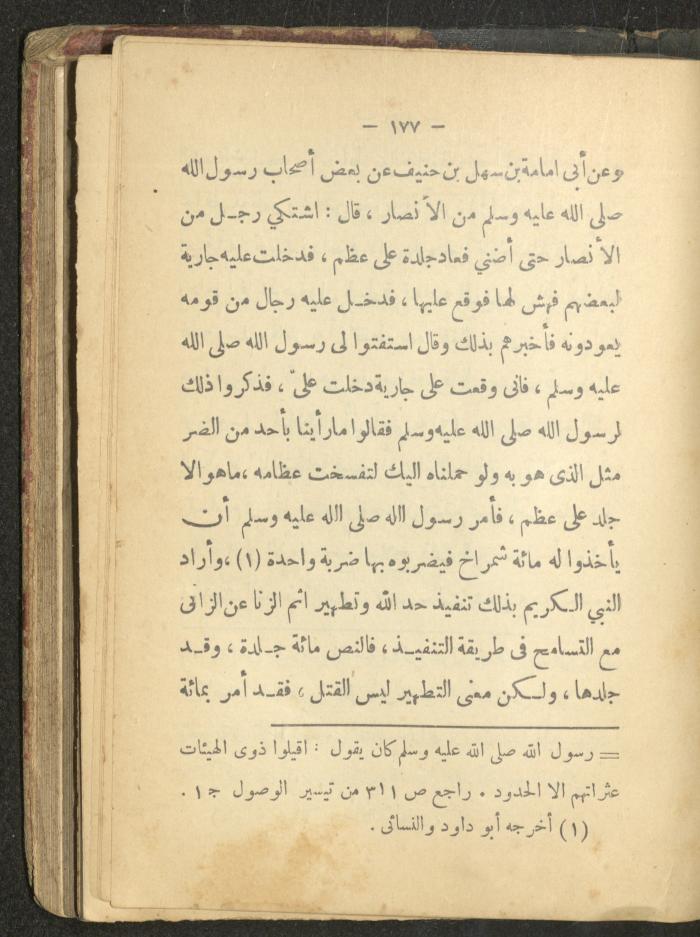 — ١٧٧ —
وعن أبى امامة بن سهل بن حنيف عن بعض أصحاب رسول الله
صلى الله عليه وسلم من الأنصار ، قال : اشتكي رجل من
الأنصار حتى أضني فعاد جلدة على عظم ، فدخلت عليه جارية
لبعضهم فهش لها فوقع عليها ، فدخل عليه رجال من قومه
يعودونه فأخبرهم بذلك وقال استفتوا لى رسول الله صلى الله
عليه وسلم ، فانى وقعت على جارية دخلت علىّ ، فذكروا ذلك
لرسول الله صلى الله عليه وسلم فقالوا مارأينا بأحد من الضر
مثل الذى هو به ولو حملناه اليك لتفسخت عظامه ، ماهو الا
جلد على عظم ، فأمر رسول الله صلى الله عليه وسلم أن
يأخذوا له مائة شمراخ فيضربوه بها ضربة واحدة (١) ، وأراد
النبي الكريم بذلك تنفيذ حد الله وتطهير اثم الزنا عن الزانى
مع التسامح فى طريقة التنفيذ ، فالنص مائة جلدة ، وقد
جلدها ، ولكن معنى التطهير ليس القتل ، فقد أمر بمائة
= رسول الله صلى الله عليه وسلم كان يقول : اقيلوا ذوى الهيئات
عثراتهم الا الحدود . راجع ص ٣١١ من تيسير الوصول ج ١ .
(١) أخرجه أبو داود والنسائى .